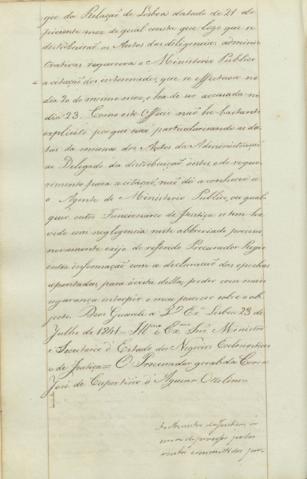 gio da Relação de Lisboa datado de 21 do
presente mez, do qual consta que logo que se
distribuirão os Autos das diligencias adminis
trativas requerera o Ministerio Publico
a citação dos interessados, que se effectuou no
dia 20 do mesmo mez, e ha de ser accusada no
dia 23. Como este Officio não he bastante
explicito por que não particularisando as da
tas da remessa dos Autos da Administração
ao Delegado, da distribuição destes, e do reque
rimento para a citação, não dá a conhecer se
o Agente do Ministerio Publico, ou qual
quer outro Funccionario de Justiça se tem ha
vido com negligencia neste abbreviado processo
novamente exijo do referido Procurador Regio
outra informação com a declaração das epochas
apontadas, para á vista della poder com mais
segurança interpôr o meu parecer sobre o ob
jecto. Deos Guarde a V. Exª Lisboa 23 de
Julho de 1841 = Illmo e Exmo Snr Ministro
e Secretario d'Estado dos Negocios Ecclesiasticos
e de Justiça = O Procurador geral da Corôa
José de Cupertino d'Aguiar Ottolini